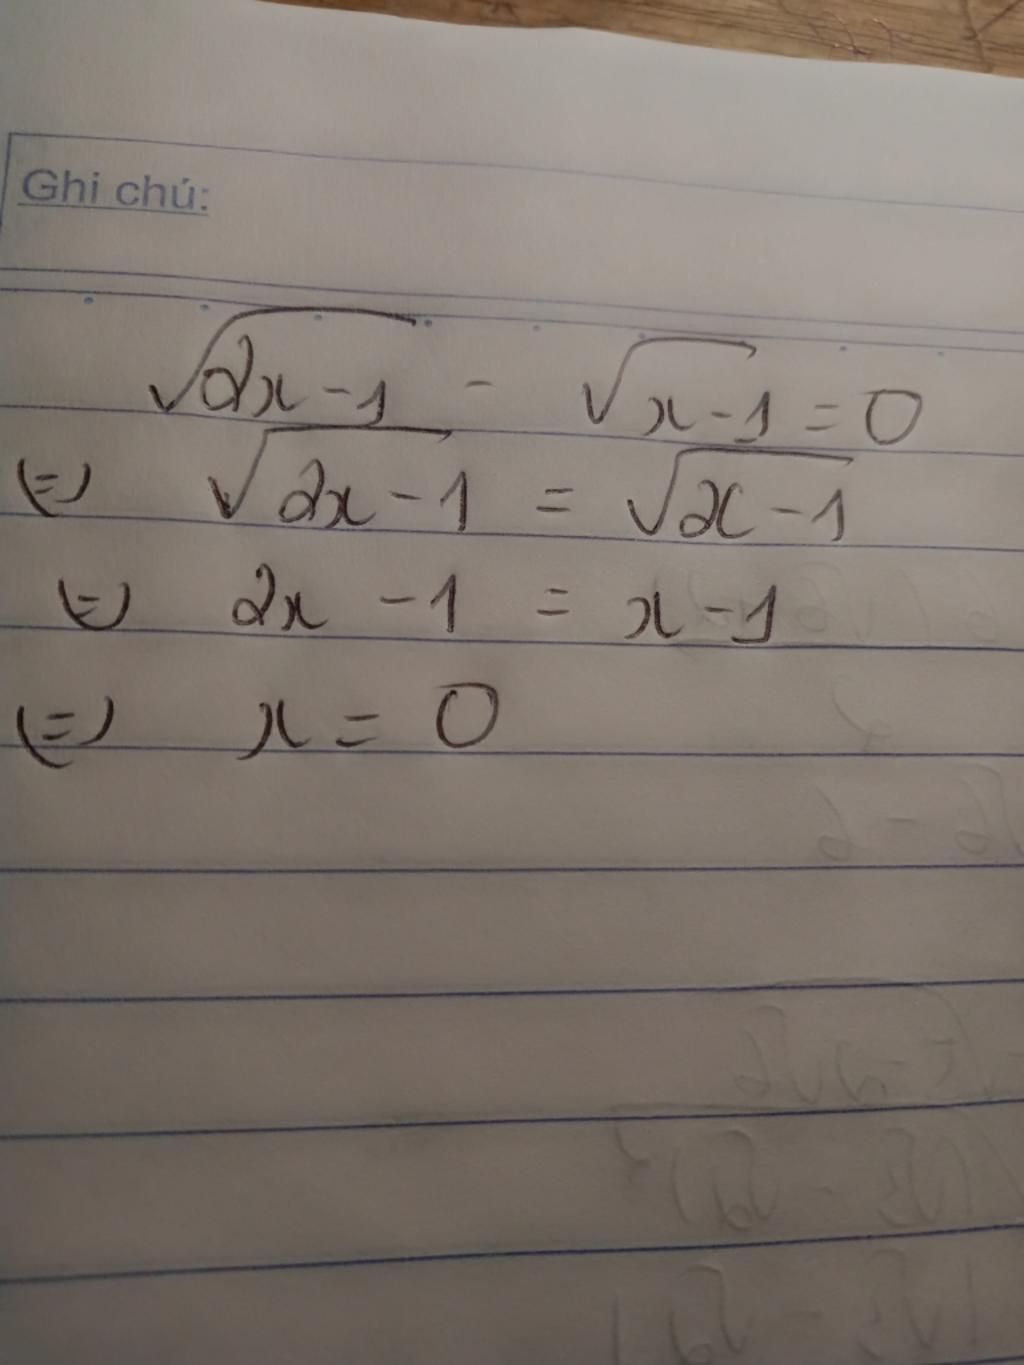 Ghi chú:
√2x-1 - √x-1 = 0
(=) √2x-1 = √x-1
(=) 2x -1 = x-1
(=) x = 0